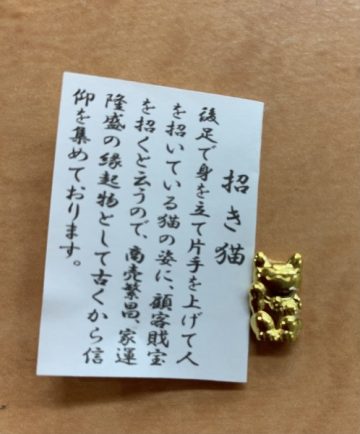 招き猫
後足で身を立て片手を上げて人
を招いている猫の姿に、顧客賎宝
を招くと云うので、商売繁昌、家運
隆盛の縁起物として古くから信
仰を集めております。